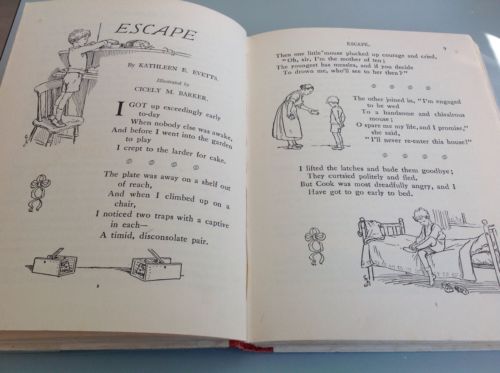 ESCAPE
By KATHLEEN E. EVETTS.
Illustrated by
CICELY M. BARKER.
I GOT up exceedingly early
to-day
When nobody else was awake,
And before I went into the garden
to play
I crept to the larder for cake.
The plate was away on a shelf out
of reach,
And when I climbed up on a
chair,
I noticed two traps with a captive
in each—
A timid, disconsolate pair.
8
ESCAPE.
9
Then one little mouse plucked up courage and cried,
"Oh, sir, I'm the mother of ten;
The youngest has measles, and if you decide
To drown me, who'll see to her then?"
The other joined in, "I'm engaged
to be wed
To a handsome and chivalrous
mouse;
O spare me my life, and I promise,"
she said,
"I'll never re-enter this house!"
I lifted the latches and bade them goodbye;
They curtsied politely and fled,
But Cook was most dreadfully angry, and I
Have got to go early to bed.